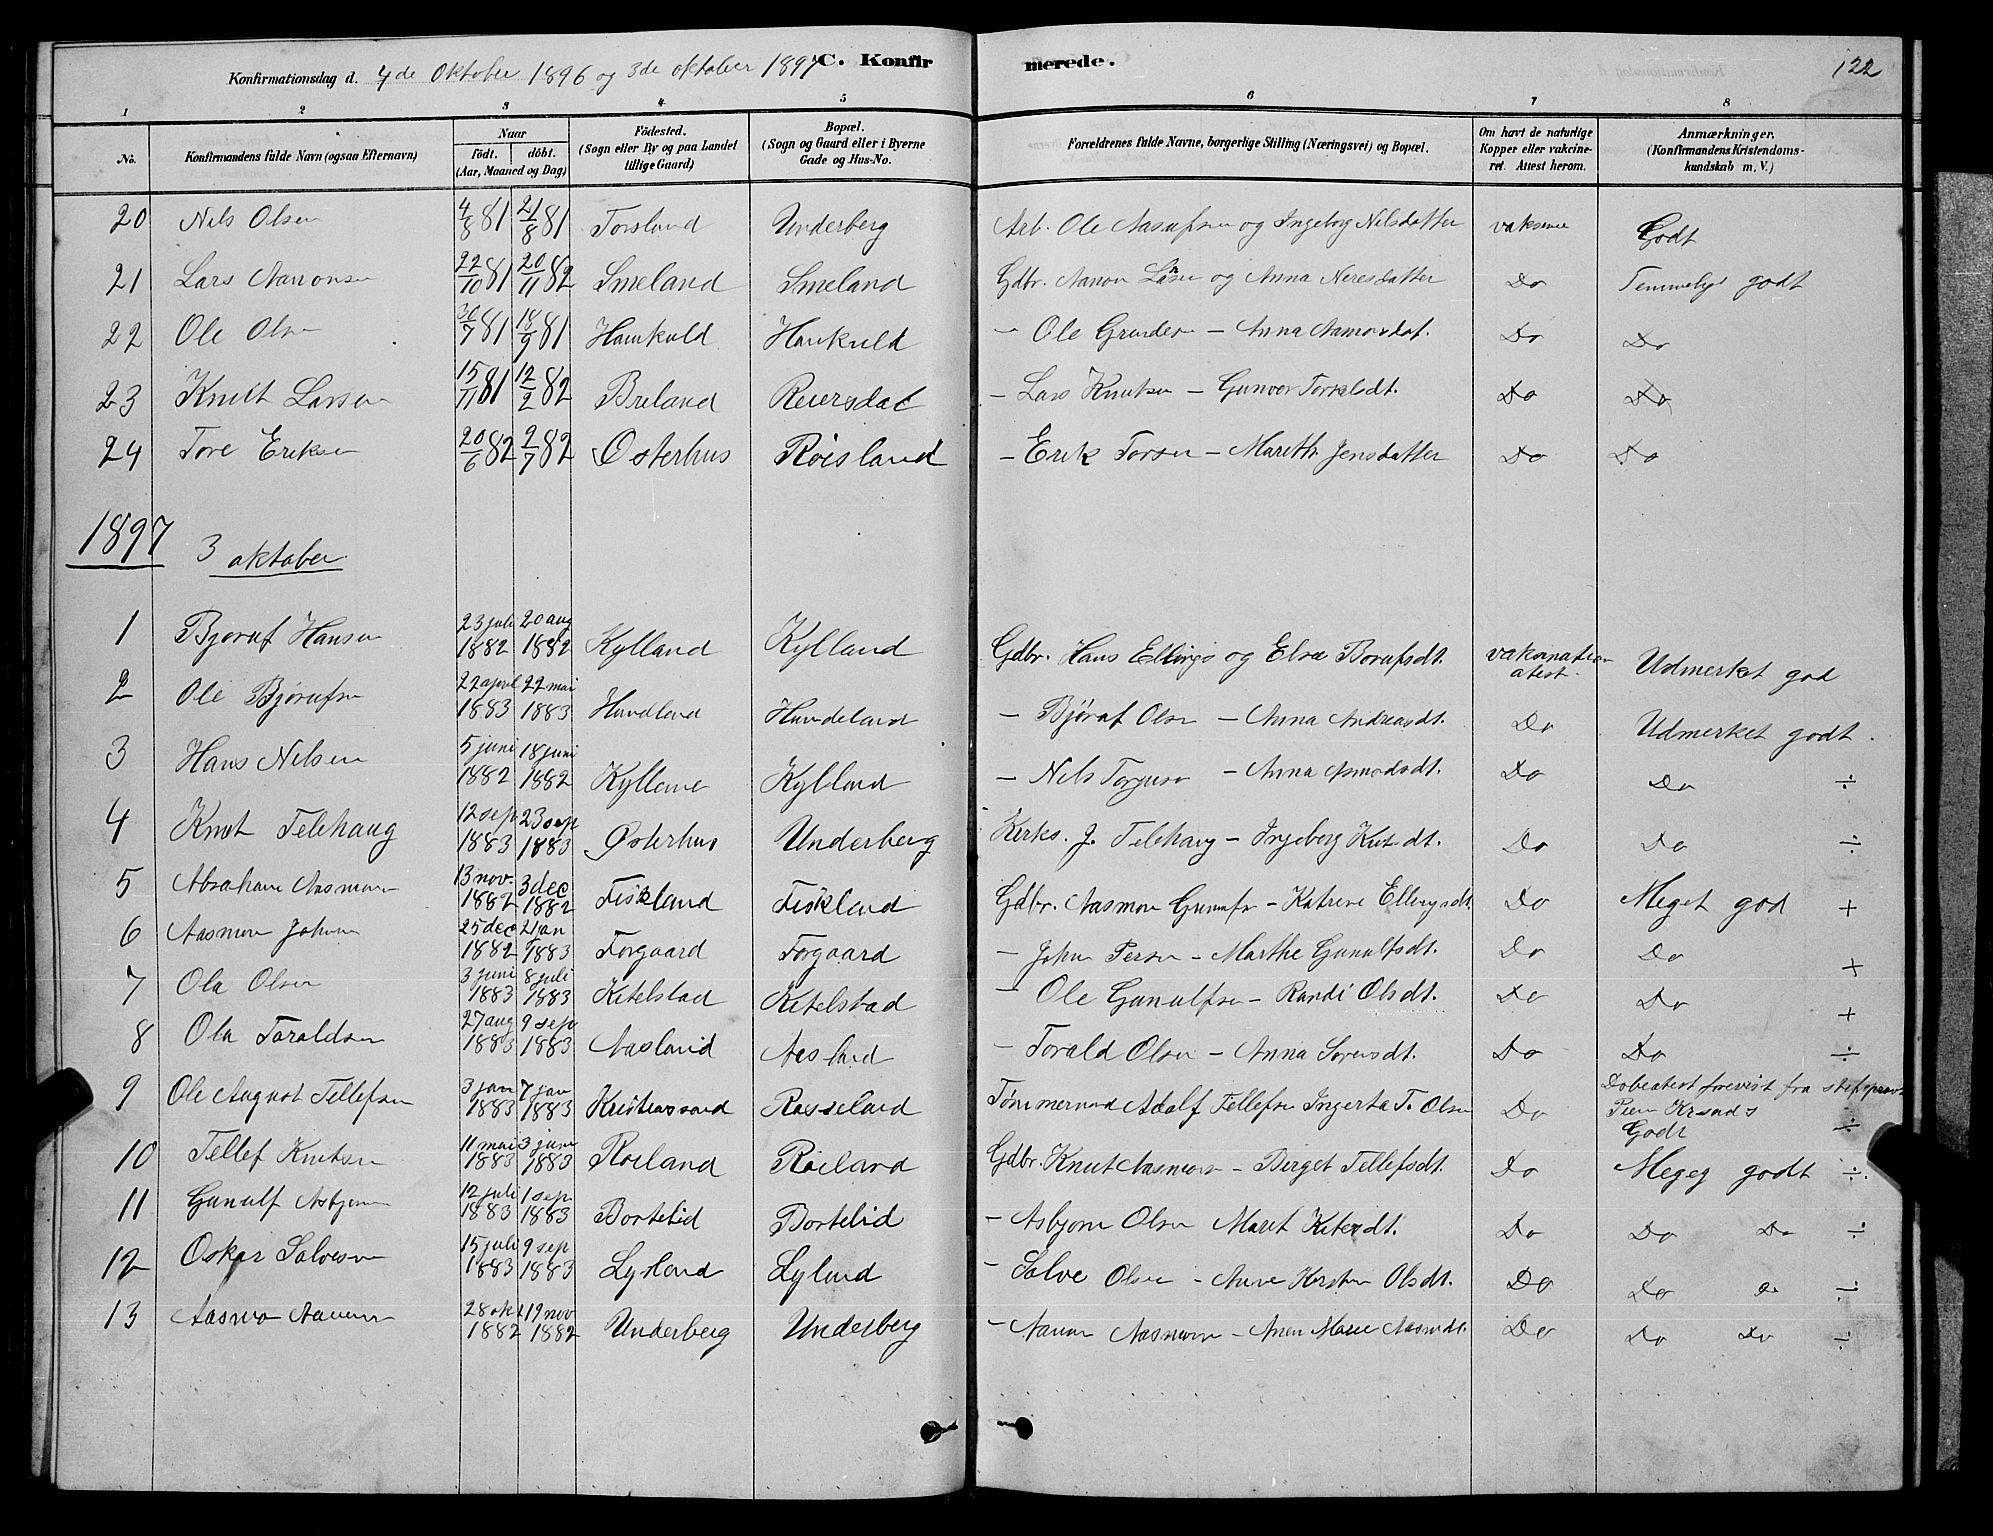 Konfirmationsdag d. 4de Oktober 1896 og 3de oktober 1897 C. Konfirmerede. 122
1 2 3 4 5 6 7 8
No. Konfirmandens fulde Navn (ogsaa Efternavn) Naar født. døbt. (Aar, Maaned og Dag) Fødested. (Sogn eller By og paa Landet tillige Gaard) Bopæl. (Sogn og Gaard eller i Byerne Gade og Hus-No. Forældrenes fulde Navne, borgerlige Stilling (Næringsvei) og Bopæl. Om havt de naturlige Kopper eller vakcineret. Attest herom. Anmærkninger. (Konfirmandens Kristendomskundskab m. V.)
20 Nils Olsen 4/8 81 21/8 81 Torsland Underberg Arb. Ole Aasufsen og Ingeborg Nilsdatter Godt
21 Lars Aanonsen 22/10 81 20/11 82 Smeland Smeland Gdbr. Aanon og Anna Neresdatter Do Temmelig godt
22 Ole Olsen 30/7 81 18/9 81 Haukuld Haukuld — Ole — Anna Do Do
23 Knut Larsen 15/11 81 12/2 82 Breland Reiersdal — Lars Knutsen — Gunvor Torkelsdt. Do Do
24 Tore Eriksen 20/6 82 2/7 82 Østerhus Røisland — Erik Torsen — Mareth Jensdatter Do Do
1897 3 oktober
1 Bjoruf Hansen 23 juli 1882 20 aug 1882 Kylland Kylland Gdbr. Hans Ellings og Elve Borufsdt. vaksination atest. Udmerket god
2 Ole Bjørufsen 22 april 1883 22 mai 1883 Hundland Hundeland — Bjøruf Olsen — Anna Andreasdt. Do Udmerket godt.
3 Hans Nilsen 5 juni 1882 18 juni 1882 Kylland Kylland — Nils Torgusen — Anna Do Do ÷
4 Knut Telehaug 12 sep 1883 23 sep 1883 Østerhus Underberg Kirks. J. Telehaug — Ingeborg Knutsdt. Do Do ÷
5 Abraham Aasmon 13 nov. 1882 3 dec 1882 Fiskland Fiskland Gdbr. Aasmon Gunufsn — Katrine Ellingsdt. Do Meget god +
6 Aasmon Johnsen 25 dec 1882 21 jan 1883 Forgaard Forgaard — John Persen — Marthe Gunulfsdt. Do Do +
7 Ola Olsen 3 juni 1883 8 juli 1883 Ketelstad Ketelstad — Ole Gunulfsen — Randi Olsdt. Do Do +
8 Ola Toraldsen 27 aug 1883 9 sep 1883 Aasland Aasland — Torald Olsen — Anna Sorensdt. Do Do ÷
9 Ole August Tellefsen 3 jan 1883 7 jan 1883 Kristiansand Rosseland Tømmermand Adolf Tellefsen Ingerta T. Olsen Do Dobeatest forevist fra Krsands Godt ÷
10 Tellef Knutsen 11 mai 1883 3 juni 1883 Roeland Roeland Gdbr. Knut Aasmon — Birget Tellefsdt. Do Megeg godt ÷.
11 Gunulf Asbjornsen 12 juli 1883 1 sep 1883 Bortelid Bortelid — Asbjorn Olsen Maret Do Do Do ÷
12 Oskar Salvesen 15 juli 1883 9 sep 1883 Lysland Lylund — Salve Olsen — Anne Kirstin Olsdt. Do Do Do ÷
13 Aasmon Aanensen 28 okt 1882 19 nov 1882 Underberg Underberg — Aanon Aasmon — Anen Marie Aasmdt. Do Do Do ÷